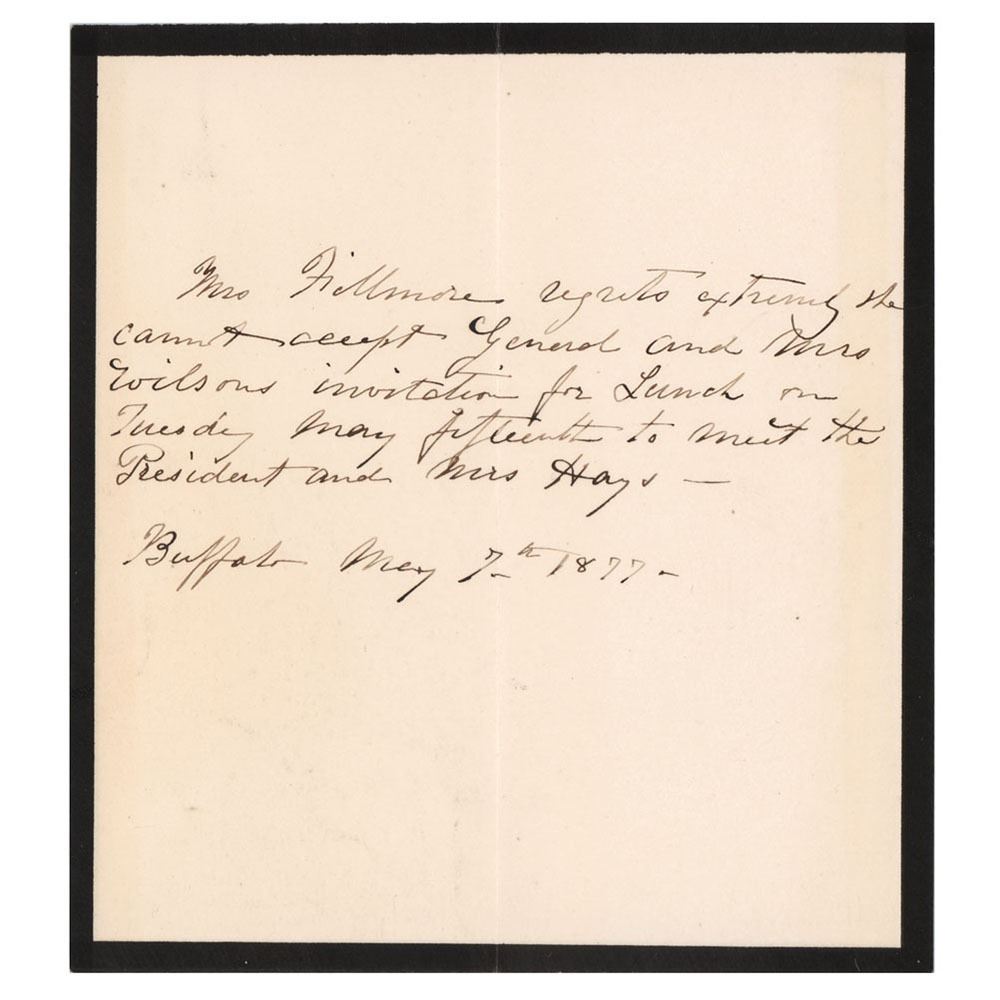 Mrs Fillmore regrets extremely she
cannot accept General and Mrs
Wilsons invitation for Lunch on
Tuesday May fifteenth to meet the
President and Mrs Hays —
Buffalo May 7th 1877-